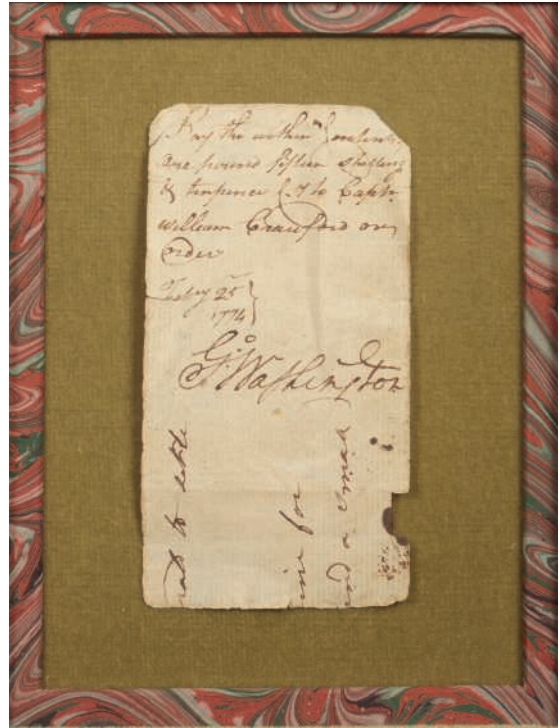 Pay the within
one pound fifteen shillings
& tenpence to Captn
William Crawford or
order
Feby 25
1774
Go Washington
to settle
me for
and a